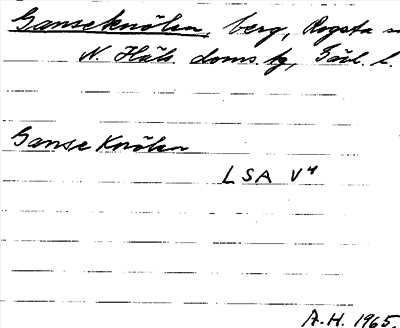 Ganseknölen, berg, Rogsta s
N. Häls. doms. hg, Gävl. l.
Ganse Knölen
LSA V4
A.H. 1965.